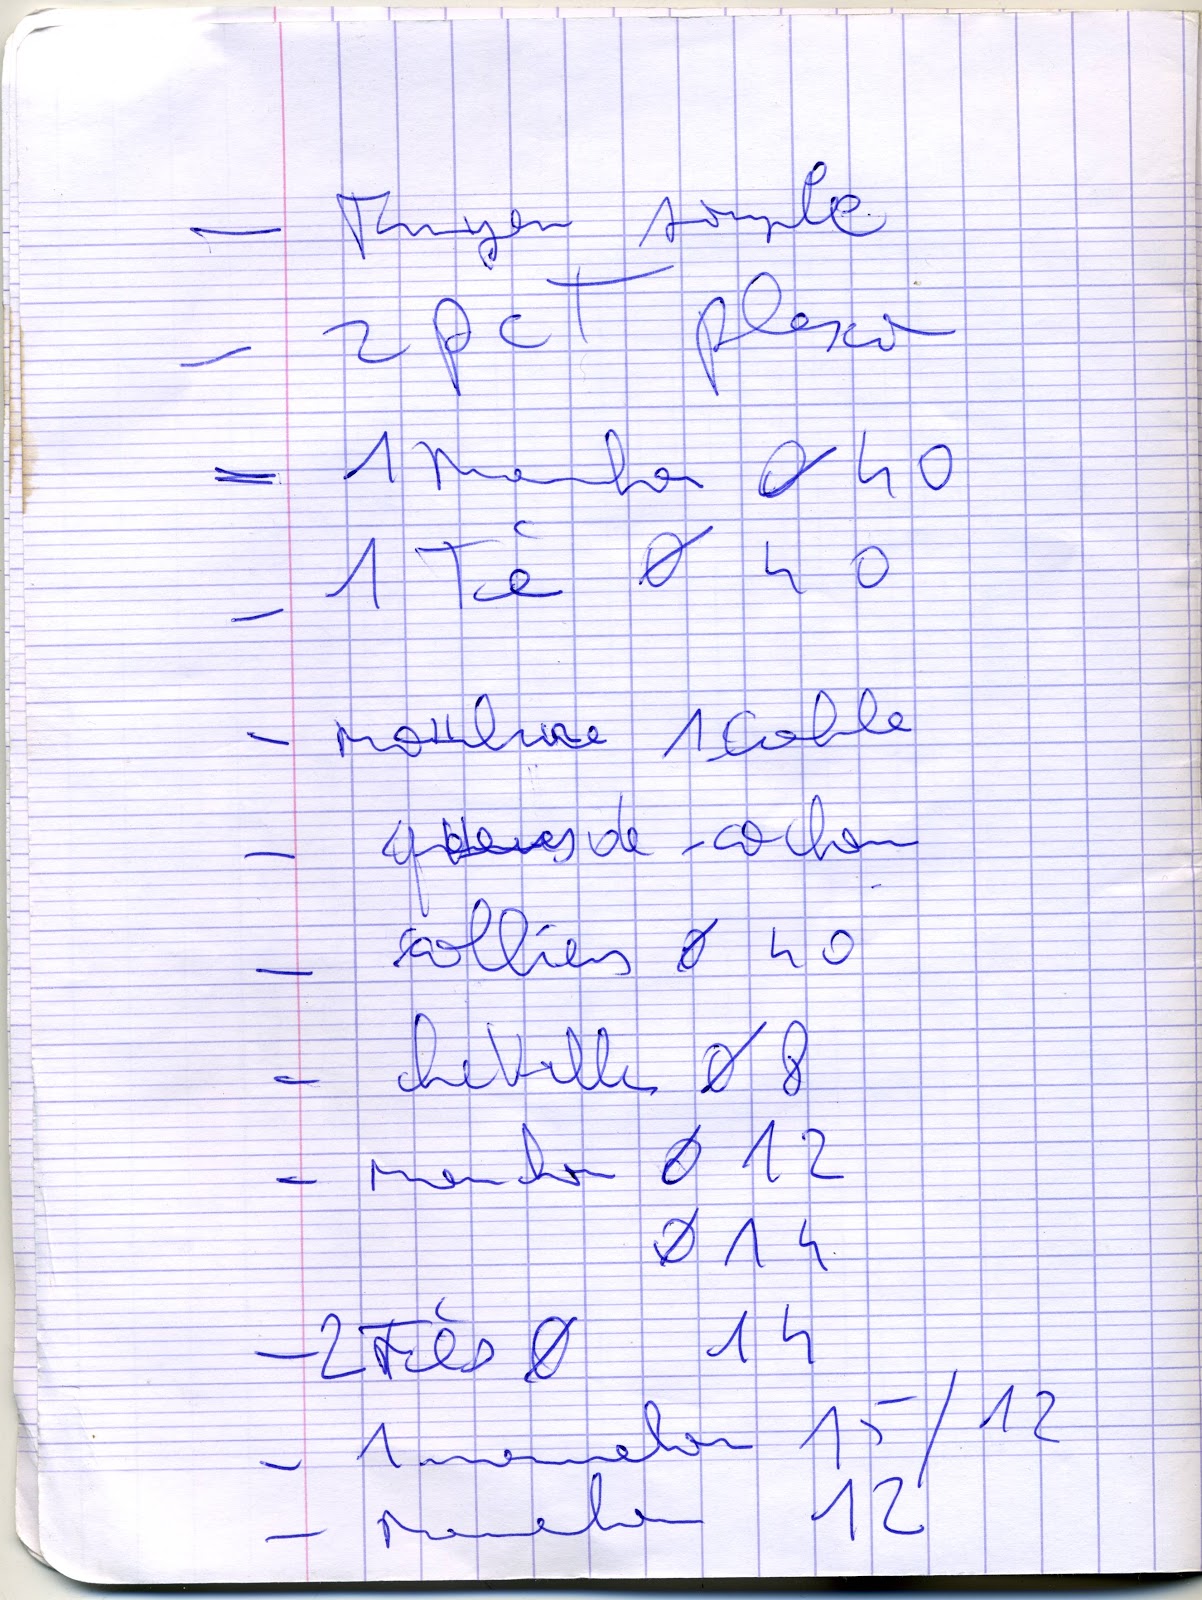 - Thuyau souple
- 2 PCT plexi
= 1 Manchon Ø 40
- 1 Té Ø 40
- moulure 1 cable
- queues de cochon
- colliers Ø 40
- chevilles Ø 8
- manchon Ø 12
Ø 14
- 2 Tés Ø 14
- 1 manchon 15/12
- manchon 12